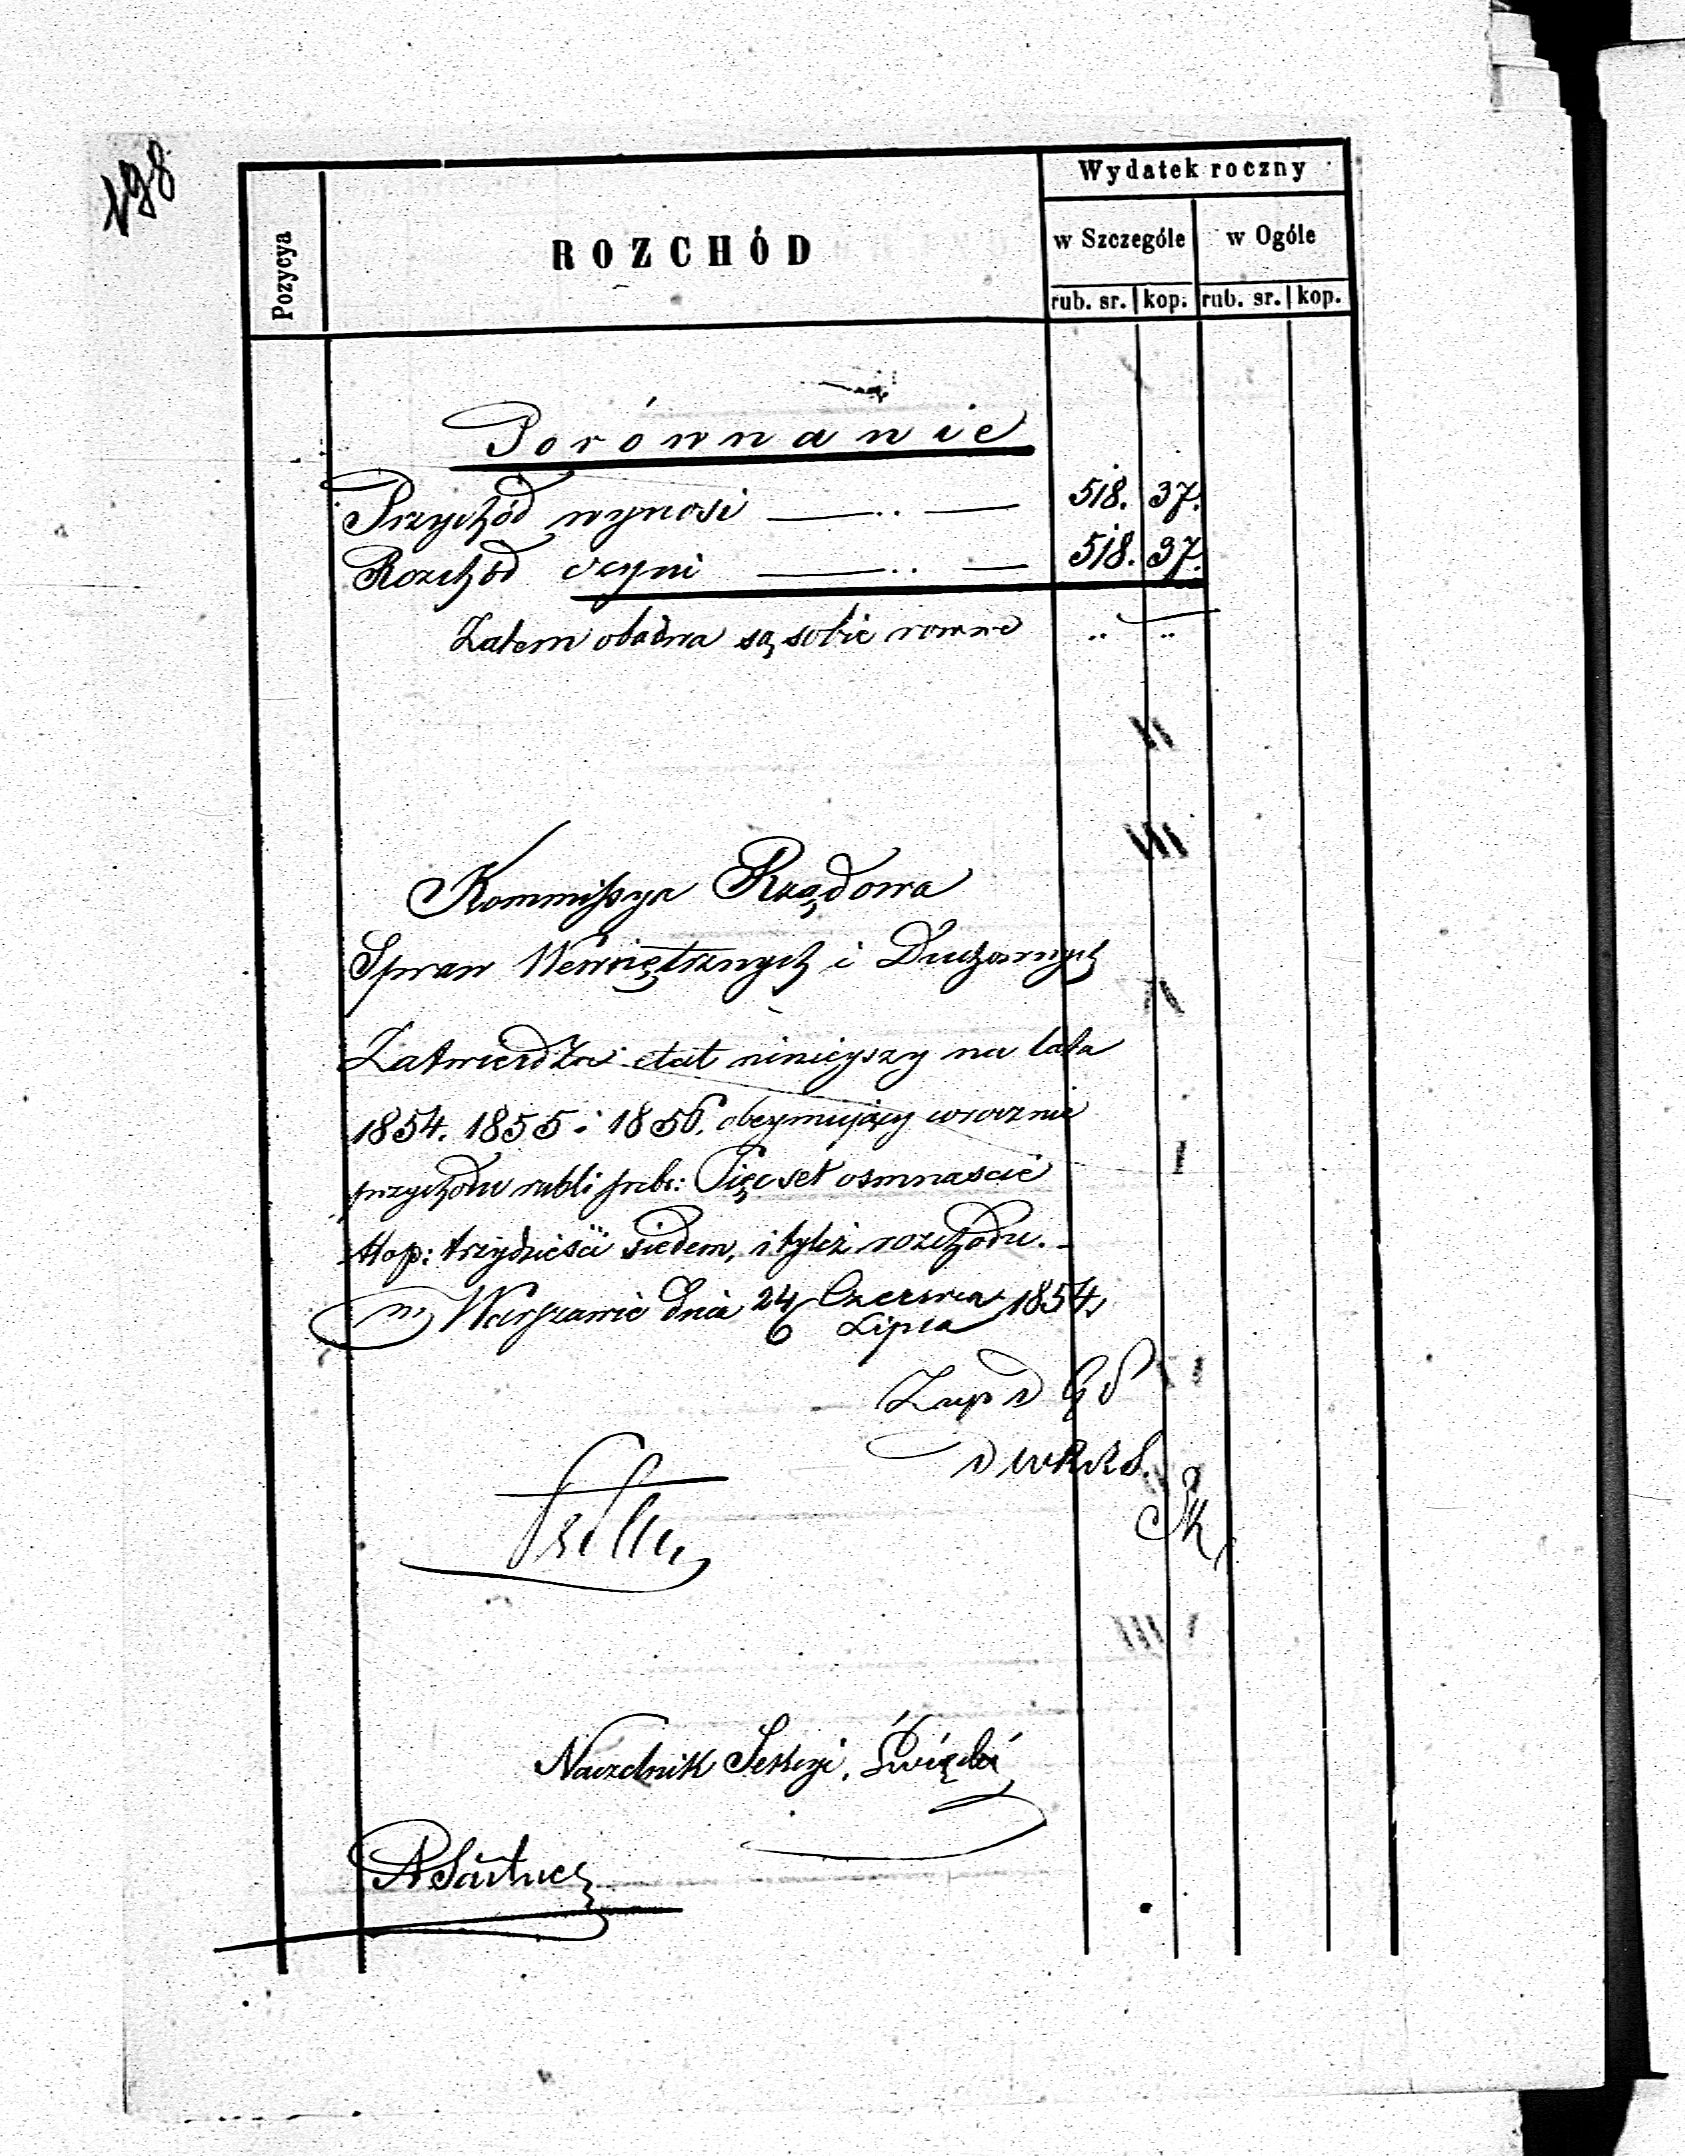 198
Pozycya
ROZCHÓD
Wydatek roczny
w Szczególe w Ogóle
rub. sr. kop. rub. sr. kop.
Porównanie
Przychód wynosi — .. — 518. 37.
Rozchód czyni — .. — 518. 37.
Zatem obadwa są sobie rowne .. ..
Kommissya Rządowa
Spraw Wewnętrznych i Duchownych
Zatwierdza etat ninieyszy na lata
1854. 1855 i 1856. obeymujący wrocznie
przychodu rubli srebr: Pięcset osmnascie
kop: trzydzieści siedem, i tyleż rozchodu. -
w Warszawie dnia 24/6 Czerwca/Lipca 1854
Naczelnik Sekcyi, Święcki